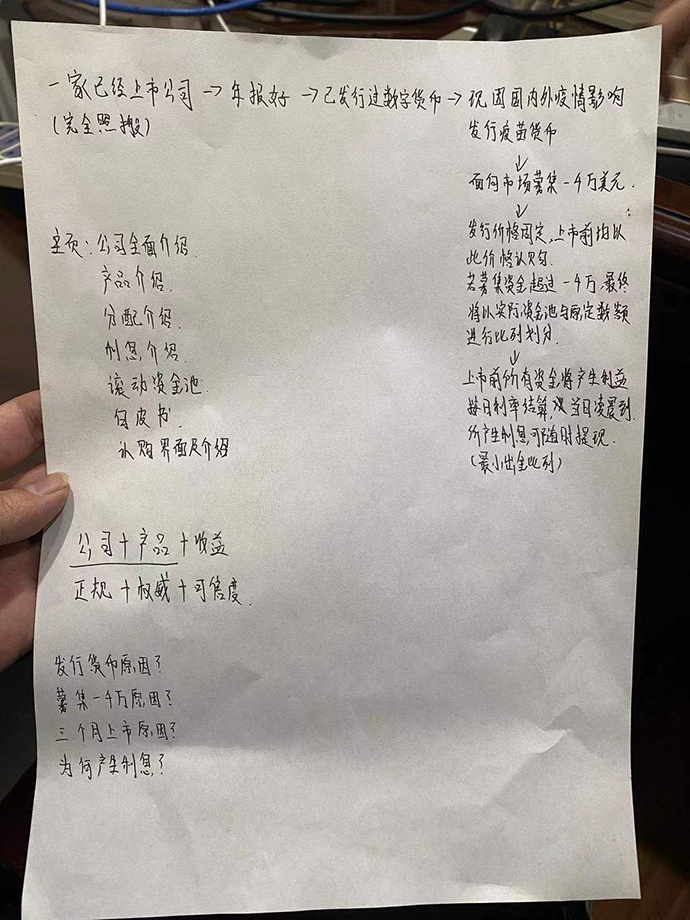 一家已经上市公司→年报好→已发行过数字货币→现因国内外疫情影响
(完全照搬)
发行疫苗货币
↓
面向市场募集一千万美元.
↓
发行价格固定,上市前均以
此价格认购.
若募集资金超过一千万,最终
将以实际资金池与原定数额
进行比列划分.
↓
上市前所有资金将产生利益
按日利率结算,次当日凌晨到
价产生利息,可随时提现.
(最小出金比列)
主页:公司全面介绍.
产品介绍.
分配介绍.
利息介绍.
滚动资金池.
白皮书.
认购界面及介绍
公司+产品+收益
正规+权威+可信度.
发行货币原因?
募集一千万原因?
三个月上市原因?
为何产生利息?